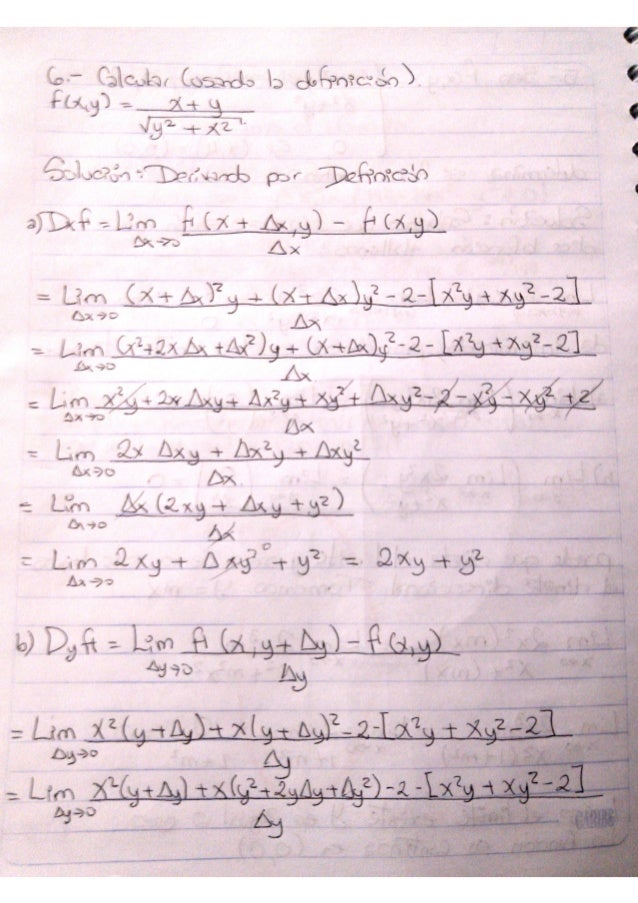 6.- Calcular (usando la definición).
f(x,y) = x + y / √y² + x²
Solución: Derivando por Definición
a) Dxf = Lim Δx→0 f(x + Δx,y) - f(x,y) / Δx
= Lim Δx→0 (x + Δx)²y + (x + Δx)y² - 2 - [x²y + xy² - 2] / Δx
= Lim Δx→0 (x² + 2xΔx + Δx²)y + (x + Δx)y² - 2 - [x²y + xy² - 2] / Δx
= Lim Δx→0 x²y + 2xΔxy + Δx²y + xy² + Δxy² - 2 - x²y - xy² + 2 / Δx
= Lim Δx→0 2xΔxy + Δx²y + Δxy² / Δx
= Lim Δx→0 Δx(2xy + Δxy + y²) / Δx
= Lim Δx→0 2xy + Δxy⁰ + y² = 2xy + y²
b) Dyf = Lim Δy→0 f(x, y + Δy) - f(x,y) / Δy
= Lim Δy→0 x²(y + Δy) + x(y + Δy)² - 2 - [x²y + xy² - 2] / Δy
= Lim Δy→0 x²(y + Δy) + x(y² + 2yΔy + Δy²) - 2 - [x²y + xy² - 2] / Δy